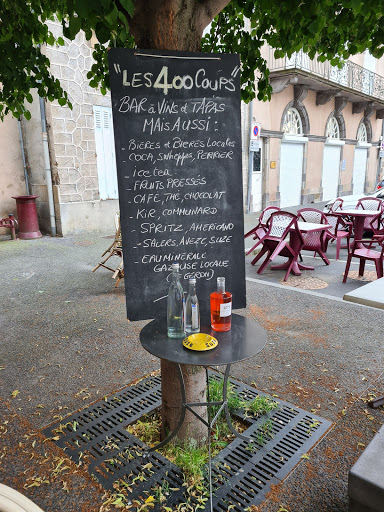 "LES 400 COUPS"
BAR à VINS et TAPAS
MAIS AUSSI :
- BIÈRES et BIÈRES LOCALES
COCA, SCHWEPPES, PERRIER
- ICE tea
- FRUITS PRESSÉS
- CAFÉ, THÉ, CHOCOLAT
- KIR, COMMUNARD
- SPRITZ, AMERICANO
- SALERS, AVEZE, SUZE
- EAU MINÉRALE
GAZEUSE LOCALE